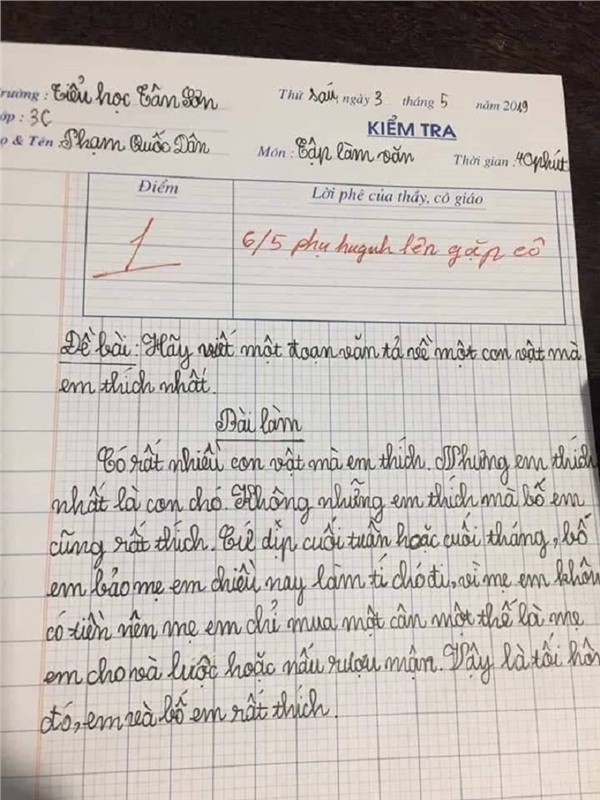 Trường : Tiểu học Tân Sơn
Thứ sáu, ngày 3 tháng 5 năm 2019
Lớp : 3C
KIỂM TRA
Họ & Tên : Phạm Quốc Dân
Môn : Tập làm văn Thời gian : 40 phút
Điểm
Lời phê của thầy, cô giáo
1
6/5 phụ huynh lên gặp cô
Đề bài: Hãy viết một đoạn văn tả về một con vật mà
em thích nhất.
Bài làm
Có rất nhiều con vật mà em thích. Nhưng em thích
nhất là con chó. Không những em thích mà bố em
cũng rất thích. Cứ dịp cuối tuần hoặc cuối tháng, bố
em bảo mẹ em chiều nay làm tí chó đi, vì mẹ em khôn
có tiền nên mẹ em chỉ mua một cân một thế là mẹ
em cho và luộc hoặc nấu rượu mận. Vậy là tối hôm
đó, em và bố em rất thích.